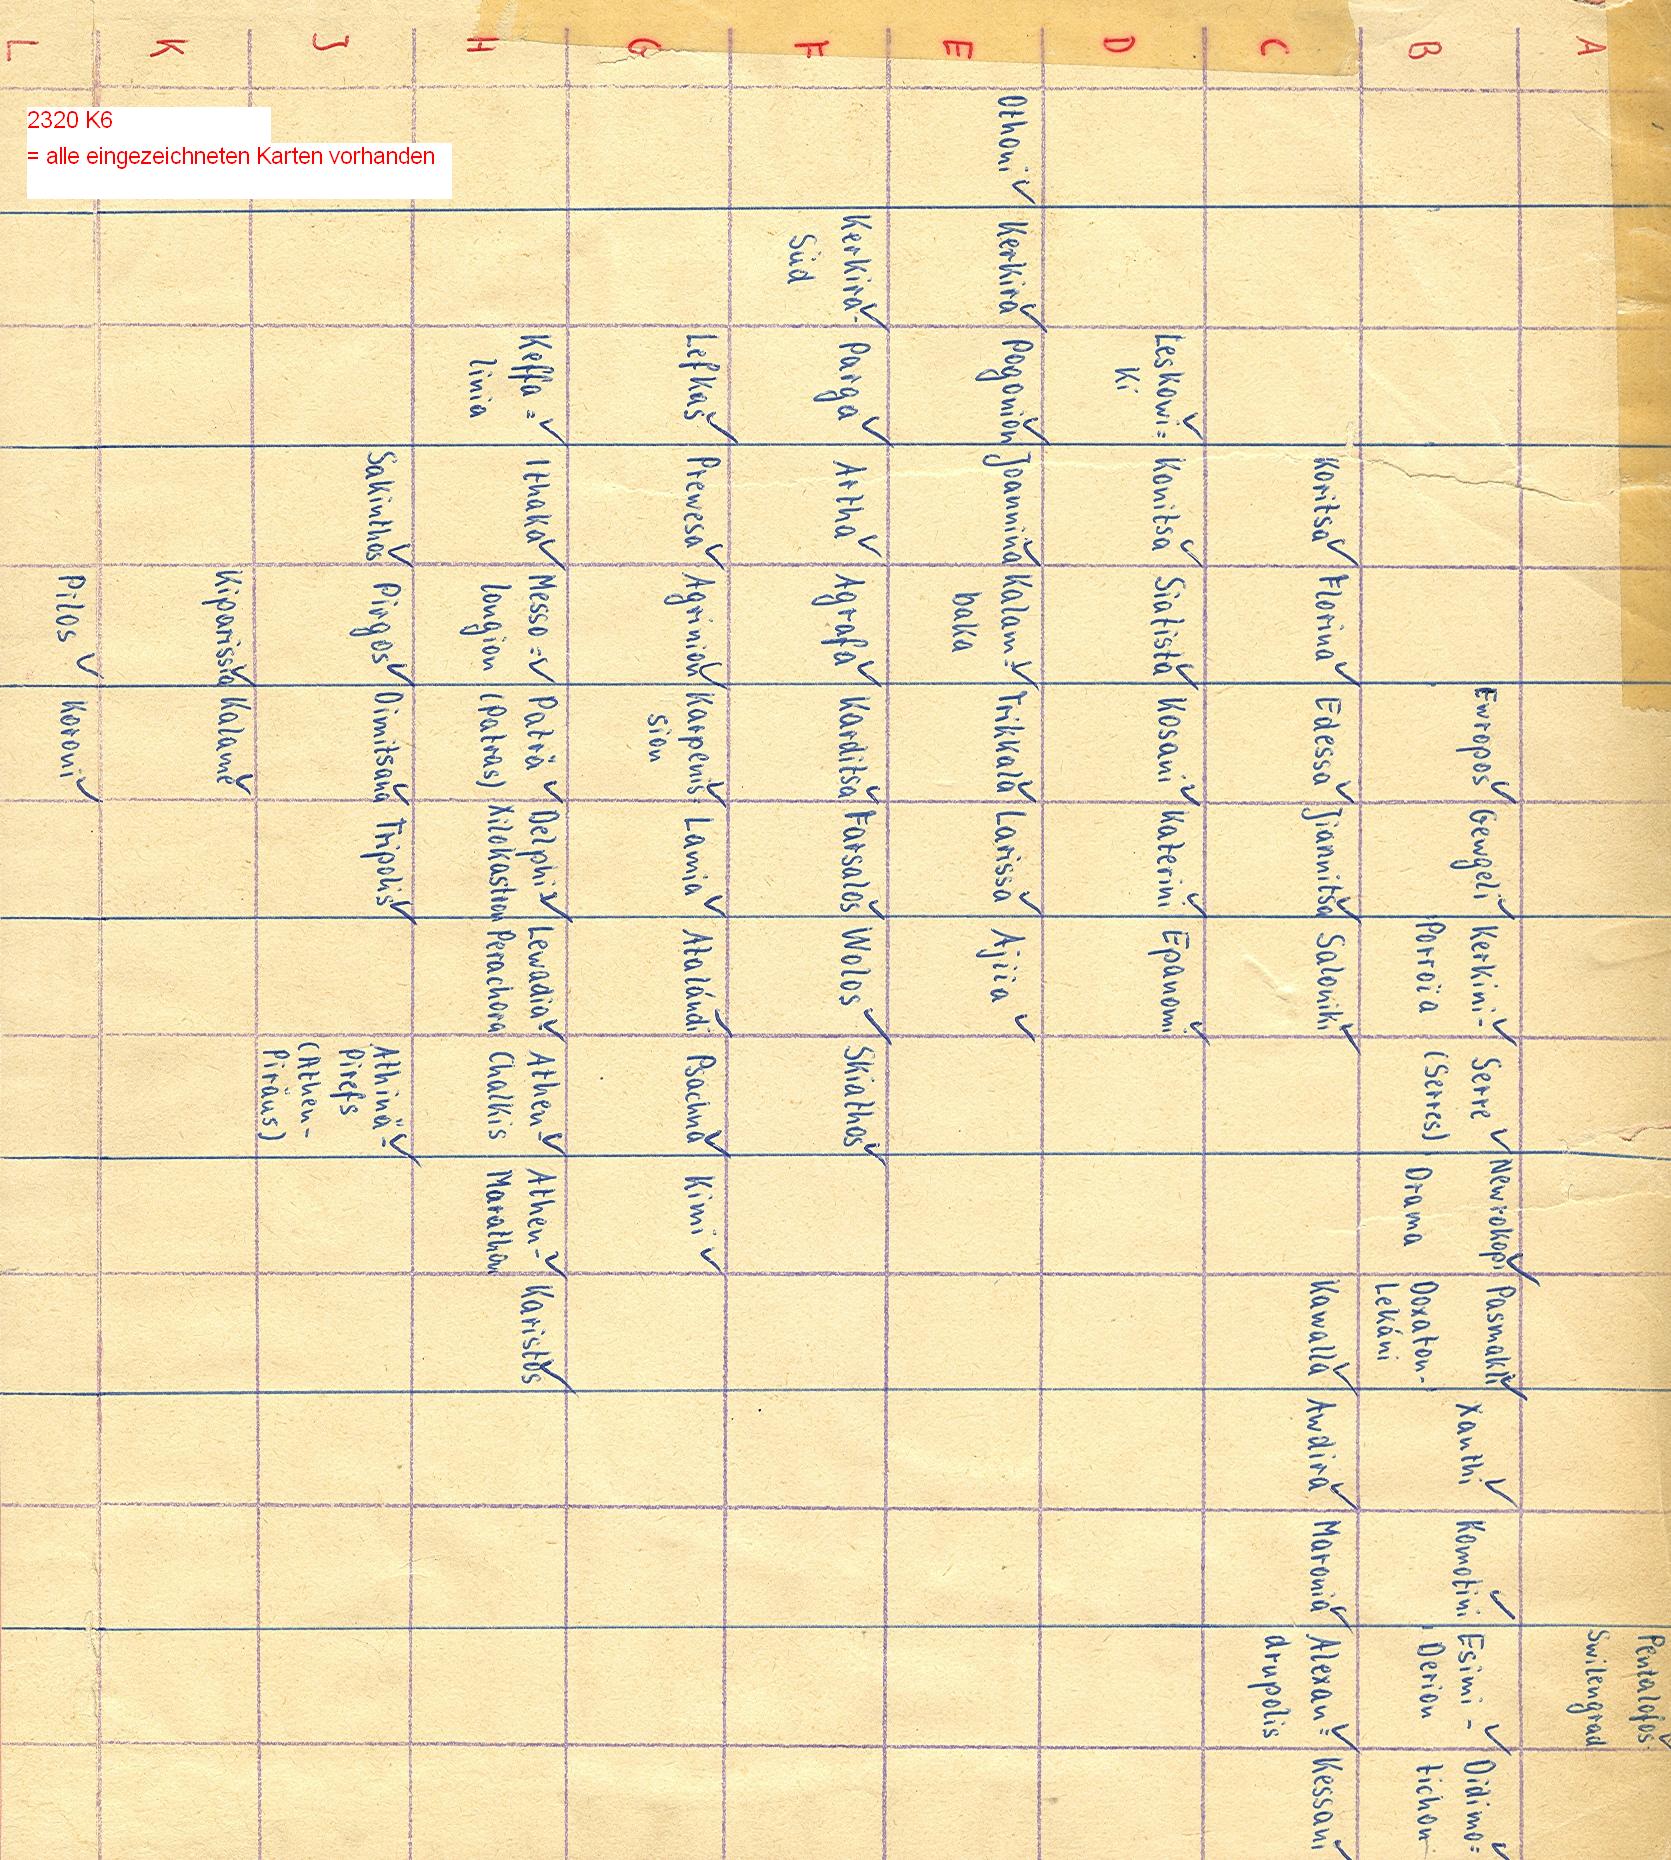 2320 K6
= alle eingezeichneten Karten vorhanden
A
Pentalofos-
Swilengrad
B
Ewropos
Gewgeli
Kerkini-
Porroïa
Serre
(Serres)
Newrokopi
Drama
Pasmakli
Doxaton-
Lekáni
Xanthi
Komotini
Esimi -
Derion
Didimo=
tichon
C
Koritsa
Florina
Edessa
Jiannitsa
Saloniki
Kawalla
Awdira
Maronia
Alexan=
drupolis
Kessani
D
Leskowi=
Ki
Konitsa
Siatista
Kosani
Katerini
Epanomi
E
Othoni
Kerkira
Pogonion
Joannina
Kalam=
baka
Trikkala
Larissa
Ajiia
F
Kerkira-
Süd
Parga
Artha
Agrafa
Karditsa
Farsalos
Wolos
Skiathos
G
Lefkas
Prewesa
Agrinion
Karpenis=
sion
Lamia
Atalándi
Psachna
Kimi
H
Keffa =
linia
Ithaka
Messo =
longion
Paträ
(Patras)
Delphi
Xilokastron
Lewadia
Perachora
Athen-
Chalkis
Athen-
Marathon
Karistos
J
Sakinthos
Pirgos
Dimitsana
Tripolis
Athinä-
Pirefs
(Athen-
Piräus)
K
Kiparissia
Kalamé
L
Pilos
Koroni